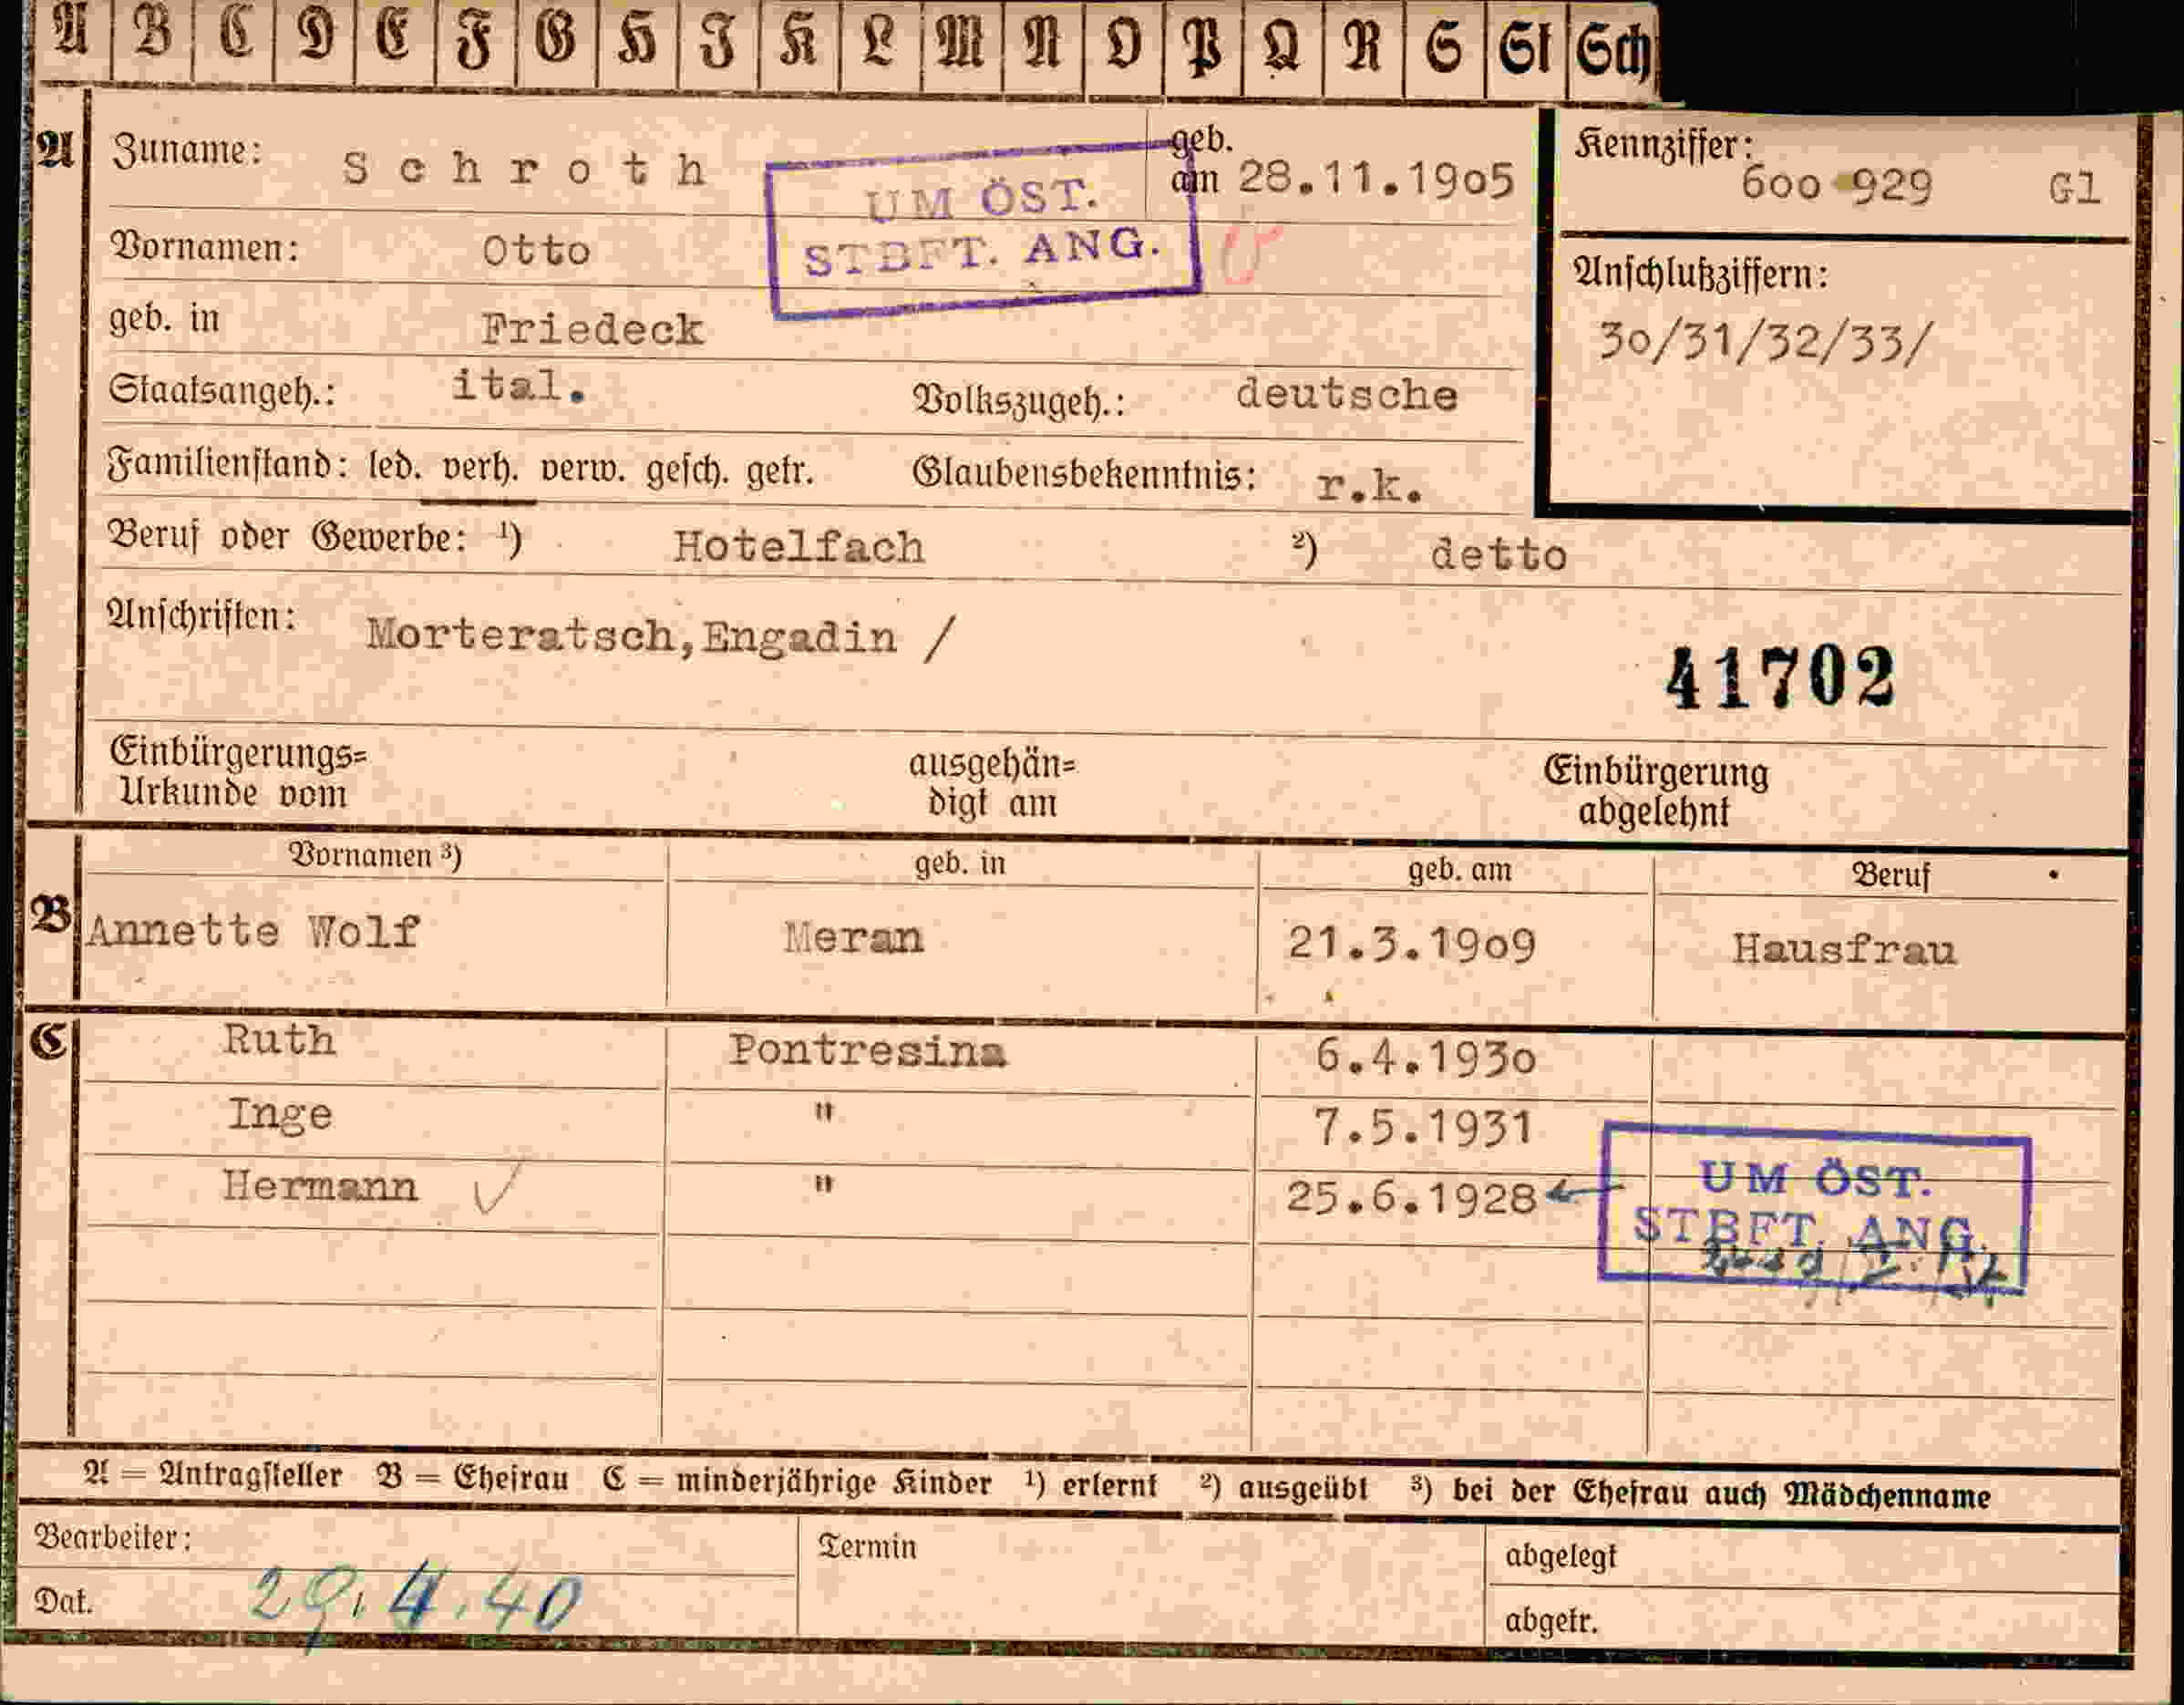 A B C D E F G H I K L M N O P Q R S St Sch
A Zuname: Schroth geb. am 28.11.1905 Kennziffer: 600 929 Gl
UM ÖST.
STBFT. ANG.
Vornamen: Otto
Anschlußziffern:
geb. in Friedeck
30/31/32/33/
Staatsangeh.: ital. Volkszugeh.: deutsche
Familienstand: led. verh. verw. gesch. getr. Glaubensbekenntnis: r.k.
Beruf oder Gewerbe: ¹) Hotelfach ²) detto
Anschriften: Morteratsch,Engadin /
41702
Einbürgerungs=
Urkunde vom
ausgehän=
digt am
Einbürgerung
abgelehnt
Vornamen ³) geb. in geb. am Beruf
B Annette Wolf Meran 21.3.1909 Hausfrau
C Ruth Pontresina 6.4.1930
Inge " 7.5.1931
Hermann " 25.6.1928
UM ÖST.
STBFT. ANG.
A = Antragsteller B = Ehefrau C = minderjährige Kinder ¹) erlernt ²) ausgeübt ³) bei der Ehefrau auch Mädchenname
Bearbeiter: Termin abgelegt
Dat. 29.4.40 abgetr.